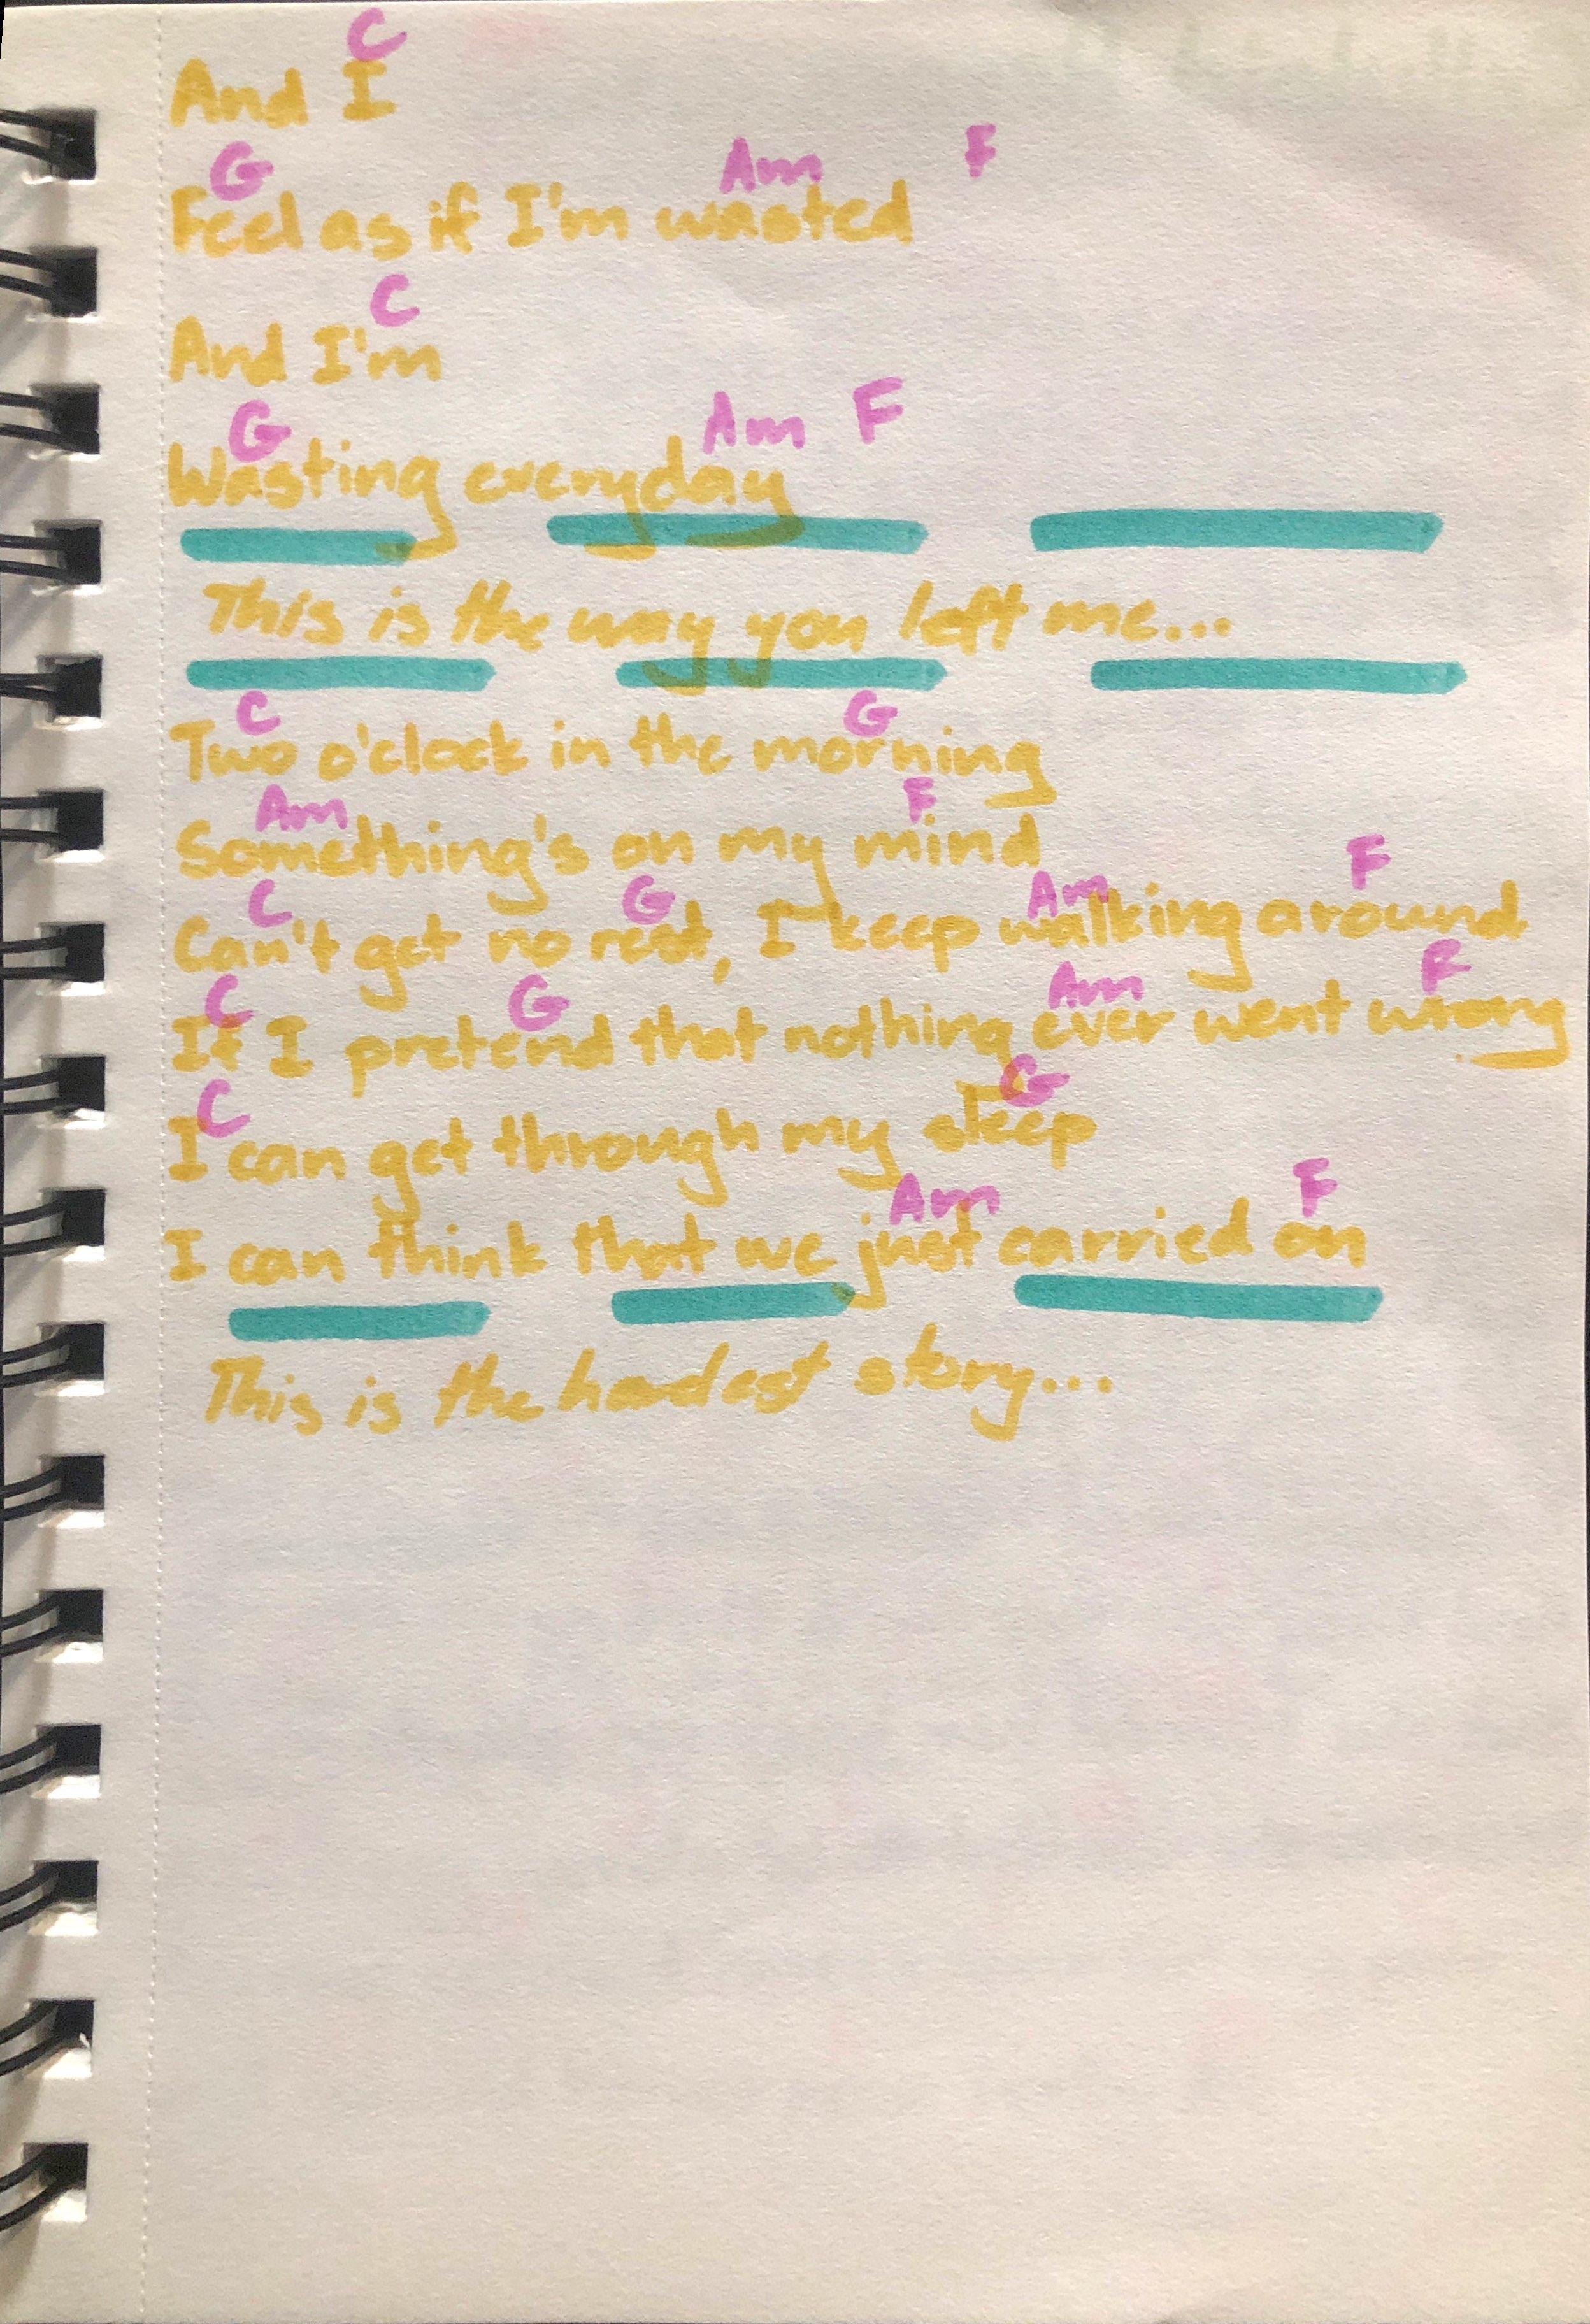 C
And I
G Am F
Feel as if I'm wasted
C
And I'm
G Am F
Wasting everyday
This is the way you left me...
C G
Two o'clock in the morning
Am F
Something's on my mind
C G Am F
Can't get no rest, I keep walking around
C G Am F
If I pretend that nothing ever went wrong
C G
I can get through my sleep
Am F
I can think that we just carried on
This is the hardest story...